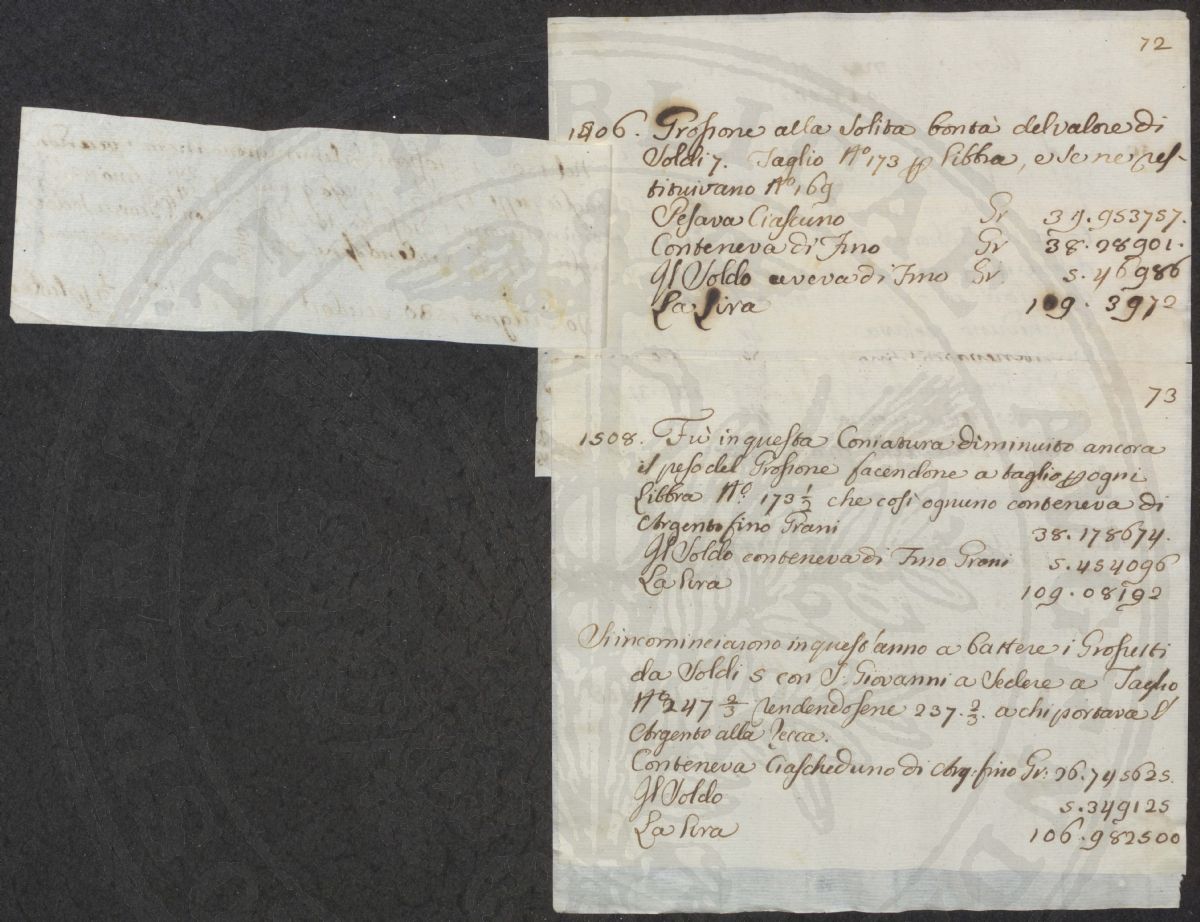 72
1506. Grossone alla Solita bontà del valore di
Soldi 7. Taglio Nº 173 p libbra, e se ne res-
tituivano Nº 169
Pesava Ciascuno Gr 39.953757.
Conteneva di Fino Gr 38.28901.
Il Soldo aveva di Fino Gr 5.46986
La Lira 109.3972
73
1508. Fù in questa Coniatura diminuito ancora
il peso del Grossone facendone a taglio p ogni
Libbra Nº. 173 1/2 che così ognuno conteneva di
Argento fino Grani 38.178674.
Il Soldo conteneva di Fino Grani 5.454096
La Lira 109.08192
Si incominciarono in quest'anno a battere i Grossetti
da Soldi 5 con S. Giovanni a Sedere a Taglio
Nº 247 2/3 rendendosene 237.2/3. a chi portava l'
Argento alla Zecca.
Conteneva Ciascheduno di Arg: fino Gr: 26.745625.
Il Soldo 5.349125
La Lira 106.982500